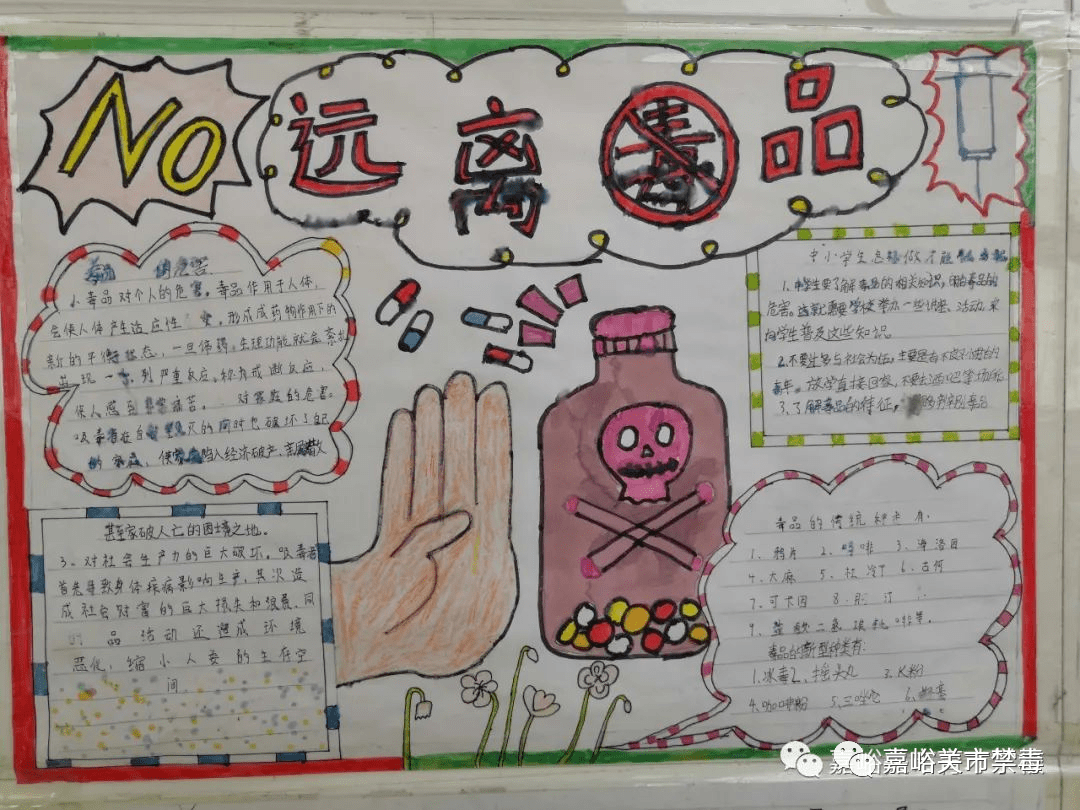 No
远离毒品
的危害
1、毒品对个人的危害。毒品作用于人体，
会使人体产生适应性 ，形成成药物作用下的
新的平衡状态，一旦停药，生理功能就会紊乱
出现一系列严重反应，称为戒断反应，
使人感到非常痛苦。 对家庭的危害。
吸毒者在自 灭的同时也破坏了自己
的家庭，使家庭陷入经济破产、亲属离散
甚至家破人亡的困境之地。
3、对社会生产力的巨大破坏。吸毒者
首先导致身体疾病影响生产，其次造
成社会财富的巨大损失和浪费，同
时 品活动还造成环境
恶化，缩小人类的生存空
间。
中小学生怎样做才能
1、中学生要了解毒品的相关知识，明白毒品的
危害。这就需要学校举办一些讲座、活动，来
向学生普及这些知识
2、不要过多与社会为伍，主要是有不良习惯的
青年。放学直接回家，不要去酒吧等场所
3、了解毒品的特征，
毒品的传统种类有：
1、鸦片 2、吗啡 3、海洛因
4、大麻 5、杜冷丁 6、古柯
7、可卡因 8、可待因
9、盐酸二氢埃托啡等。
毒品的新型种类有：
1、冰毒 2、摇头丸 3、K粉
4、咖啡粉 5、三唑仑
嘉峪嘉峪关市禁毒